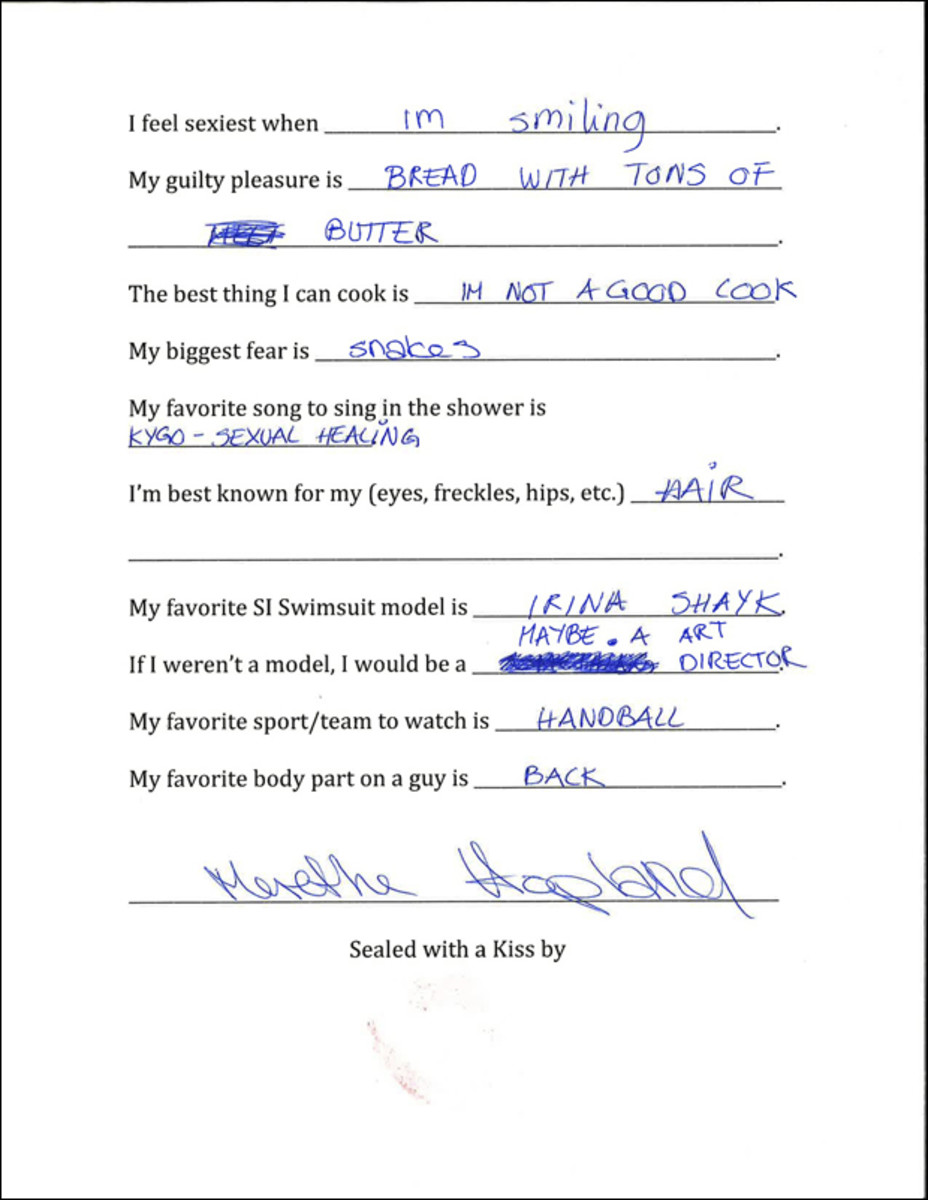 I feel sexiest when IM smiling.
My guilty pleasure is BREAD WITH TONS OF
BUTTER.
The best thing I can cook is IM NOT A GOOD COOK
My biggest fear is snakes.
My favorite song to sing in the shower is
KYGO - SEXUAL HEALING
I'm best known for my (eyes, freckles, hips, etc.) HAIR
.
My favorite SI Swimsuit model is IRINA SHAYK.
MAYBE. A ART
If I weren't a model, I would be a DIRECTOR.
My favorite sport/team to watch is HANDBALL.
My favorite body part on a guy is BACK.
Merethe Hopland
Sealed with a Kiss by